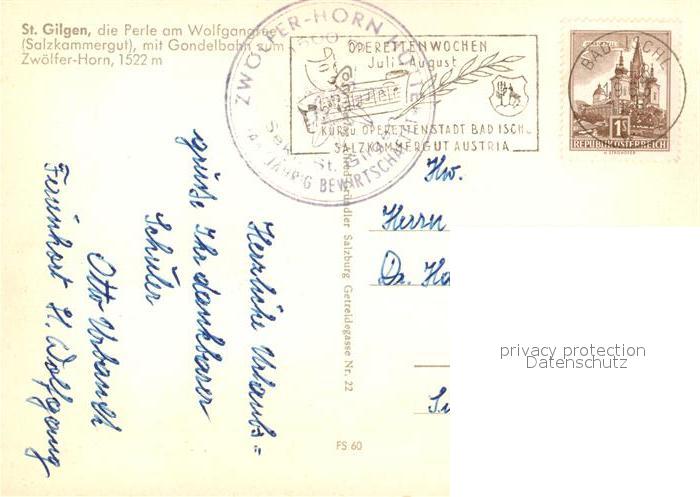 St. Gilgen, die Perle am Wolfgangsee
(Salzkammergut), mit Gondelbahn zum
Zwölfer-Horn, 1522 m
ZWÖLFER-HORN HÜTTE
GANZJÄHRIG BEWIRTSCHAFTET
OPERETTENWOCHEN
Juli-August
KURRU OPERETTENSTADT BAD ISCHL
SALZKAMMERGUT AUSTRIA
BAD ISCHL
1S
REPUBLIK ÖSTERREICH
Herzliche Urlaubs=
grüße Ihr dankbarer
Schüler
Otto Urbandt
Ferienhort St. Wolfgang
Salzburg Getreidegasse Nr. 22
FS 60
Hw.
Herrn
Dr. Ha
privacy protection
Datenschutz